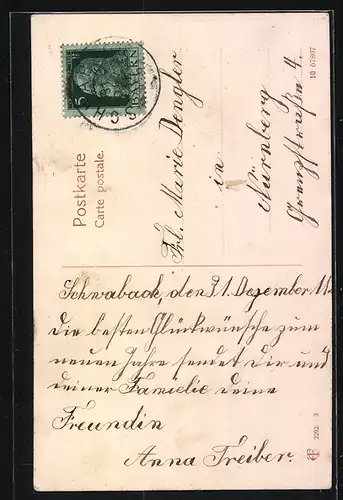 Postkarte
Carte postale.
5
BAYERN
Frl. Marie Dengler
in
Nürnberg
Grenzstraße 4.
10 67807
Schwabach, den 31. Dezember 11.
Die besten Glückwünsche zum
neuen Jahre sendet Dir und
deiner Familie deine
Freundin
Anna Treiber.
2292. 3